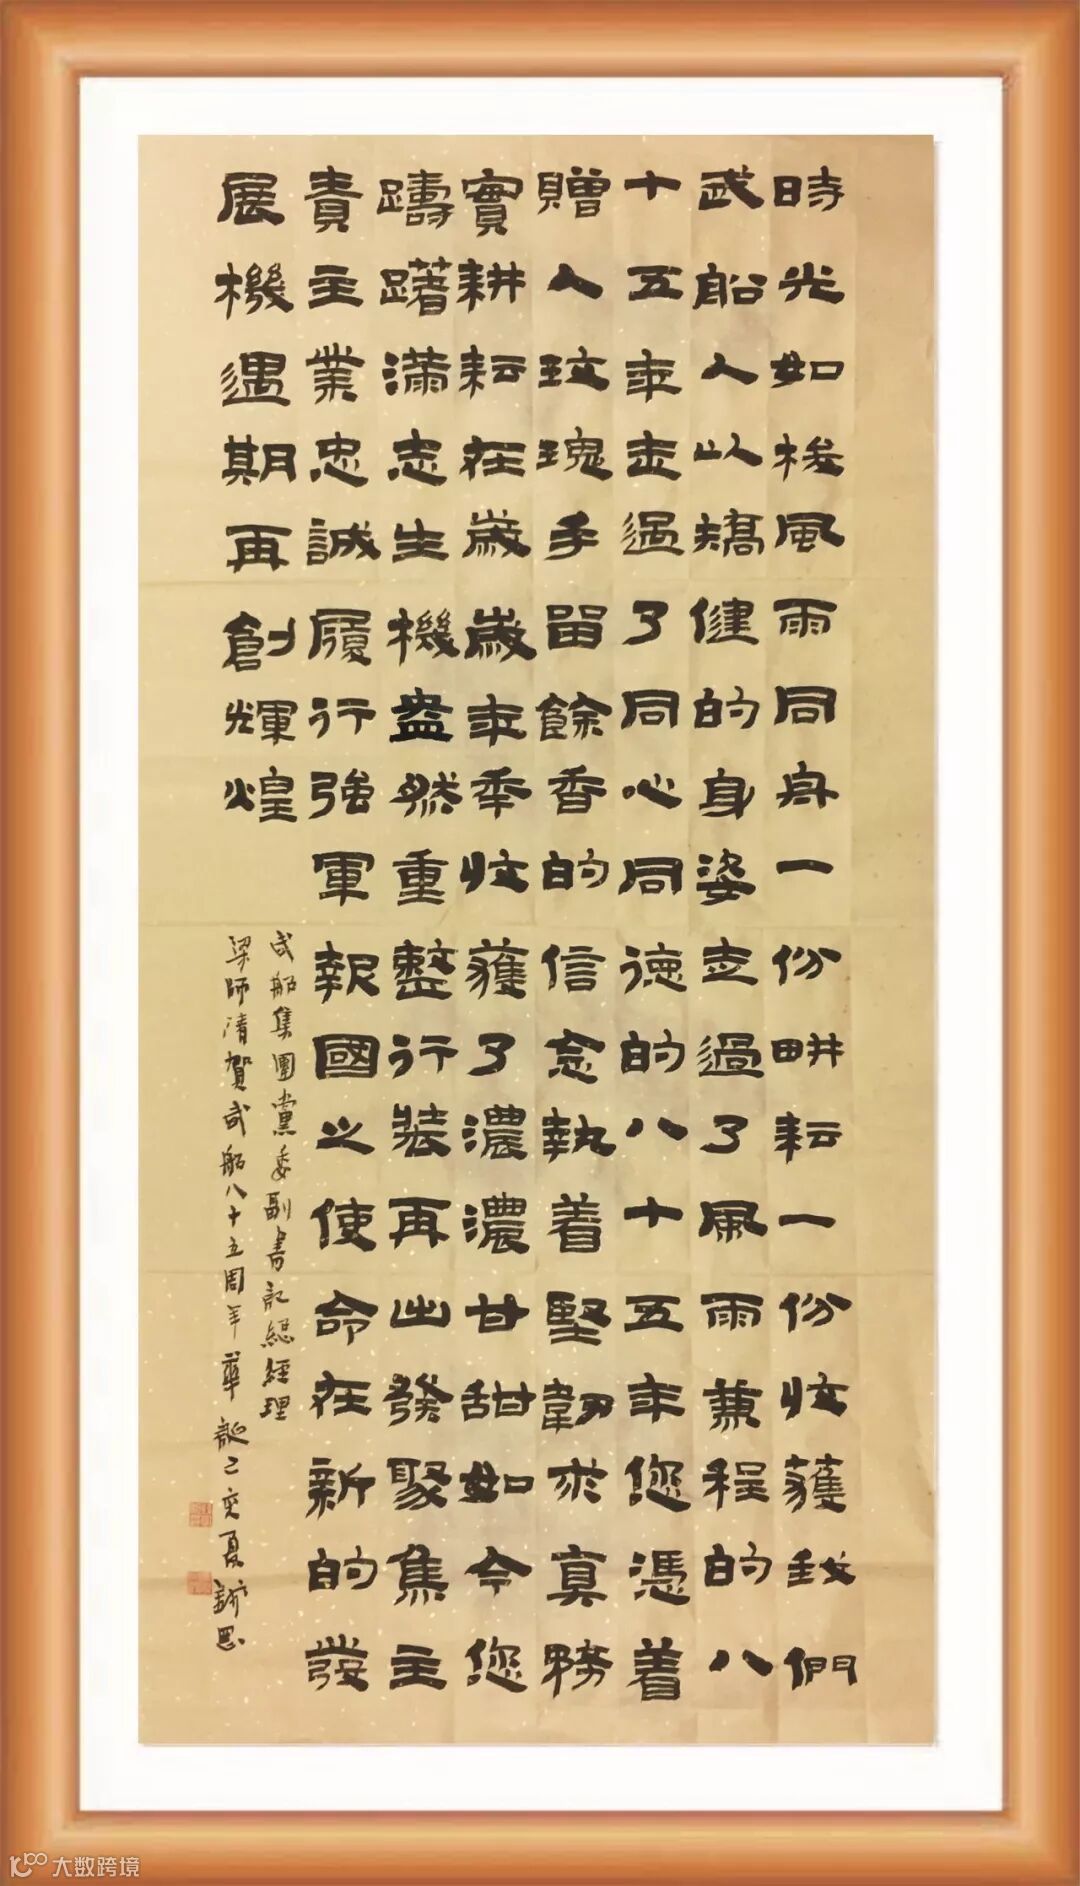 時光如梭風雨同舟一份畊耘一份收獲我們
武船人以矯健的身姿走過了風雨兼程的八
十五年走過了同心同德的八十五年您憑着
贈人玫瑰手留餘香的信念執着堅韌求真務
實耕耘在歲歲年年收獲了濃濃甘甜如今您
躊躇滿志生機盎然重整行裝再出發聚焦主
責主業忠誠履行強軍報國之使命在新的發
展機遇期再創輝煌
武船集團黨委副書記總經理
梁師清賀武船八十五周年華誕己亥夏
大数跨境